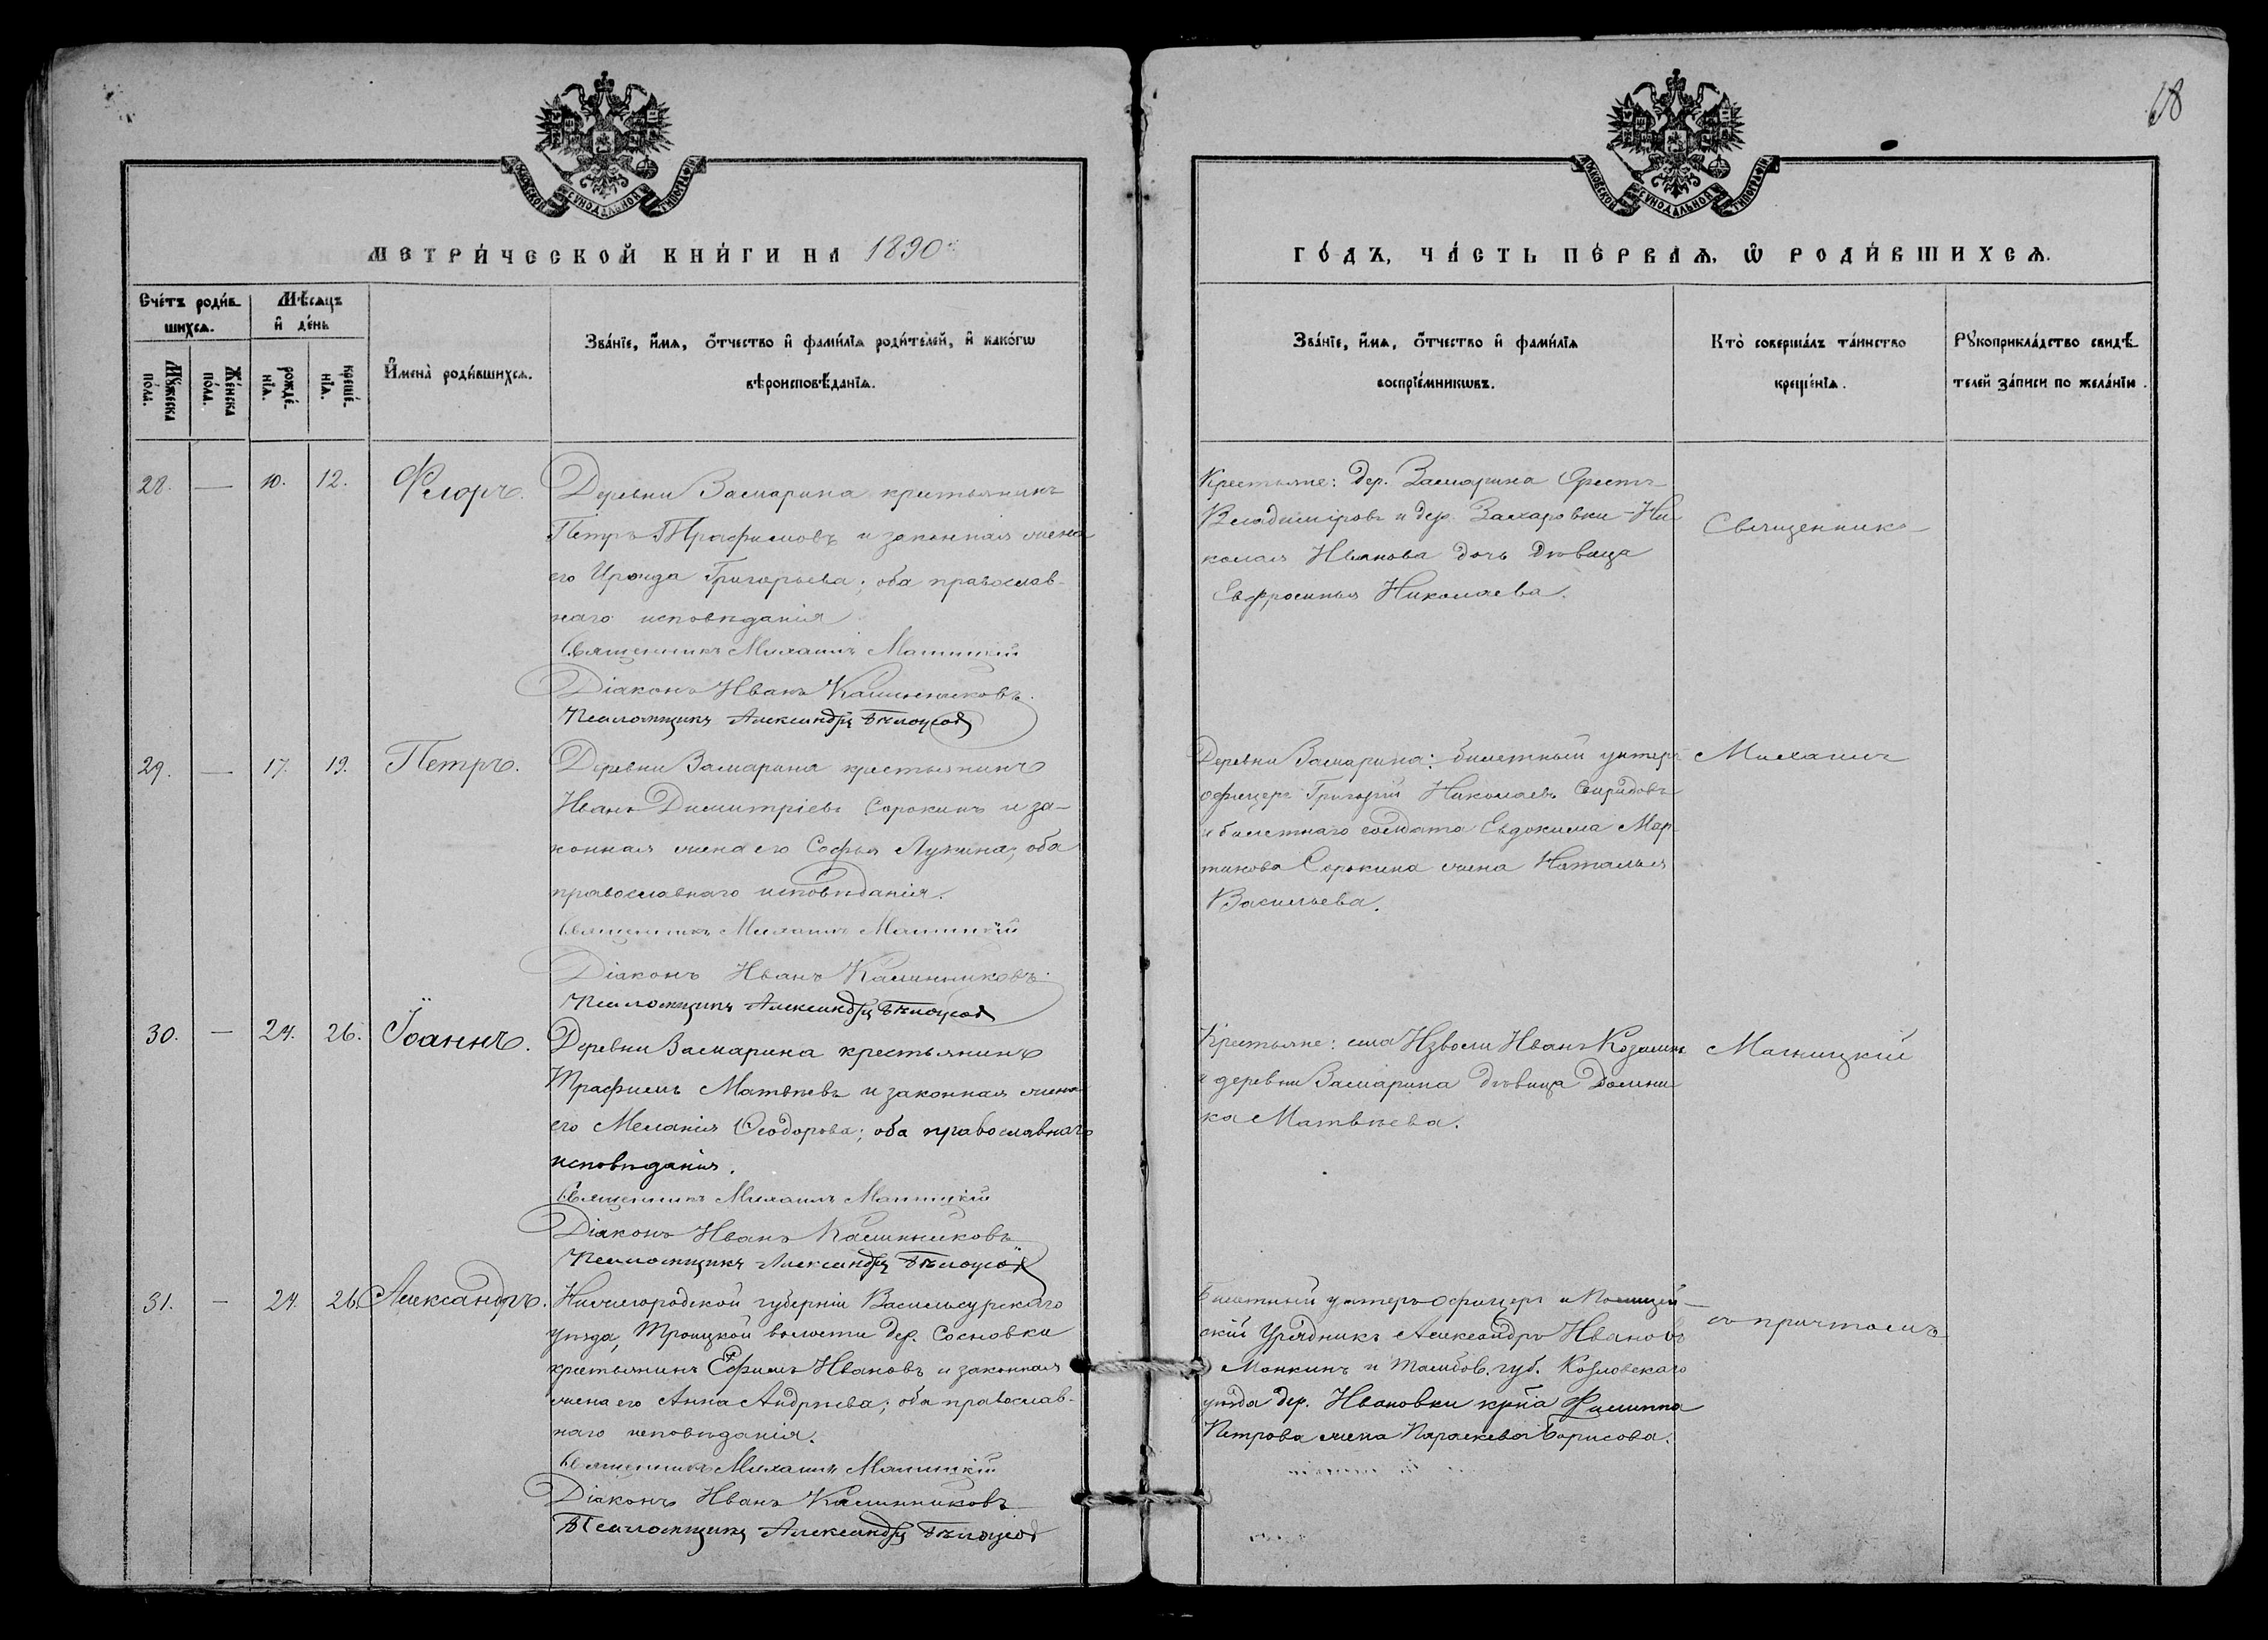 68
МОСКОВСКОЙ СѴНОДАЛЬНОЙ ТИПОГРАФІИ
МОСКОВСКОЙ СѴНОДАЛЬНОЙ ТИПОГРАФІИ
МЕТРИ́ЧЕСКОЙ КНИ́ГИ НА 1890
ГО́ДЪ, ЧА́СТЬ ПЕ́РВАѦ, Ѽ РОДИ́ВШИХСѦ.
Сче́тъ роди́в-
шихсѧ.
Мꙋ́жеска по́ла.
Же́нска по́ла.
Мѣ́сѧцъ
и҆ де́нь
рожде́-
нїѧ.
креще́-
нїѧ.
И҆мена̀ роди́вшихсѧ.
Зва́нїе, и҆́мѧ, ѻ҆́тчество и҆ фами́лїѧ роди́телей, и҆ како́гѡ
вѣроисповѣ́данїѧ.
Зва́нїе, и҆́мѧ, ѻ҆́тчество и҆ фами́лїѧ
воспрїе́мникѡвъ.
Кто̀ соверша́лъ та́инство
креще́нїѧ.
Рꙋкоприкла́дство свидѣ́-
телей за́писи по жела́нїю.
28. — 10. 12. Флоръ.
Деревни Замарина крестьянинъ
Петръ Трафимовъ и законная жена
его Ираида Григорьева; оба православ-
наго исповѣданія
Священникъ Михаилъ Магницкій
Діаконъ Иванъ Калинниковъ.
Псаломщикъ Александръ Бѣлоусов
Крестьяне: дер. Замарина Орестъ
Владиміровъ и дер. Захаровки Ни-
колая Иванова дочь дѣвица
Евфросинья Николаева.
Священникъ
29. — 17. 19. Петръ.
Деревни Замарина крестьянинъ
Иванъ Димитріевъ Сорокинъ и за-
конная жена его Софья Лукина; оба
православнаго исповѣданія.
Священникъ Михаилъ Магницкій
Діаконъ Иванъ Калинниковъ.
Псаломщикъ Александръ Бѣлоусов
Деревни Замарина: билетный унтеръ
офицеръ Григорій Николаевъ Свиридовъ
и билетнаго солдата Евдокима Мар-
тинова Сорокина жена Наталья
Васильева.
Михаилъ
30. — 24. 26. Іоаннъ.
Деревни Замарина крестьянинъ
Трафимъ Матвѣевъ и законная жена
его Меланія Ѳеодорова; оба православнаго
исповѣданія.
Священникъ Михаилъ Магницкій
Діаконъ Иванъ Калинниковъ
Псаломщикъ Александръ Бѣлоусов
Крестьяне: села Изволи Иванъ Козминъ
и деревни Замарина дѣвица Домни-
ка Матвѣева.
Магницкій
31. — 24. 26. Александръ.
Нижегородской губерніи Васильсурскаго
уѣзда, Троицкой волости дер. Сосновки
крестьянинъ Ефимъ Ивановъ и законная
жена его Анна Андрѣева; оба православ-
наго исповѣданія.
Священникъ Михаилъ Магницкій
Діаконъ Иванъ Калинниковъ
Псаломщикъ Александръ Бѣлоусов
Билетный унтеръ офицеръ и Полицей-
скій Урядникъ Александръ Ивановъ
Монкинъ и Тамбов. губ. Козловскаго
уѣзда дер. Ивановки кр-на Филиппа
Петрова жена Параскева Борисова.
съ причтомъ